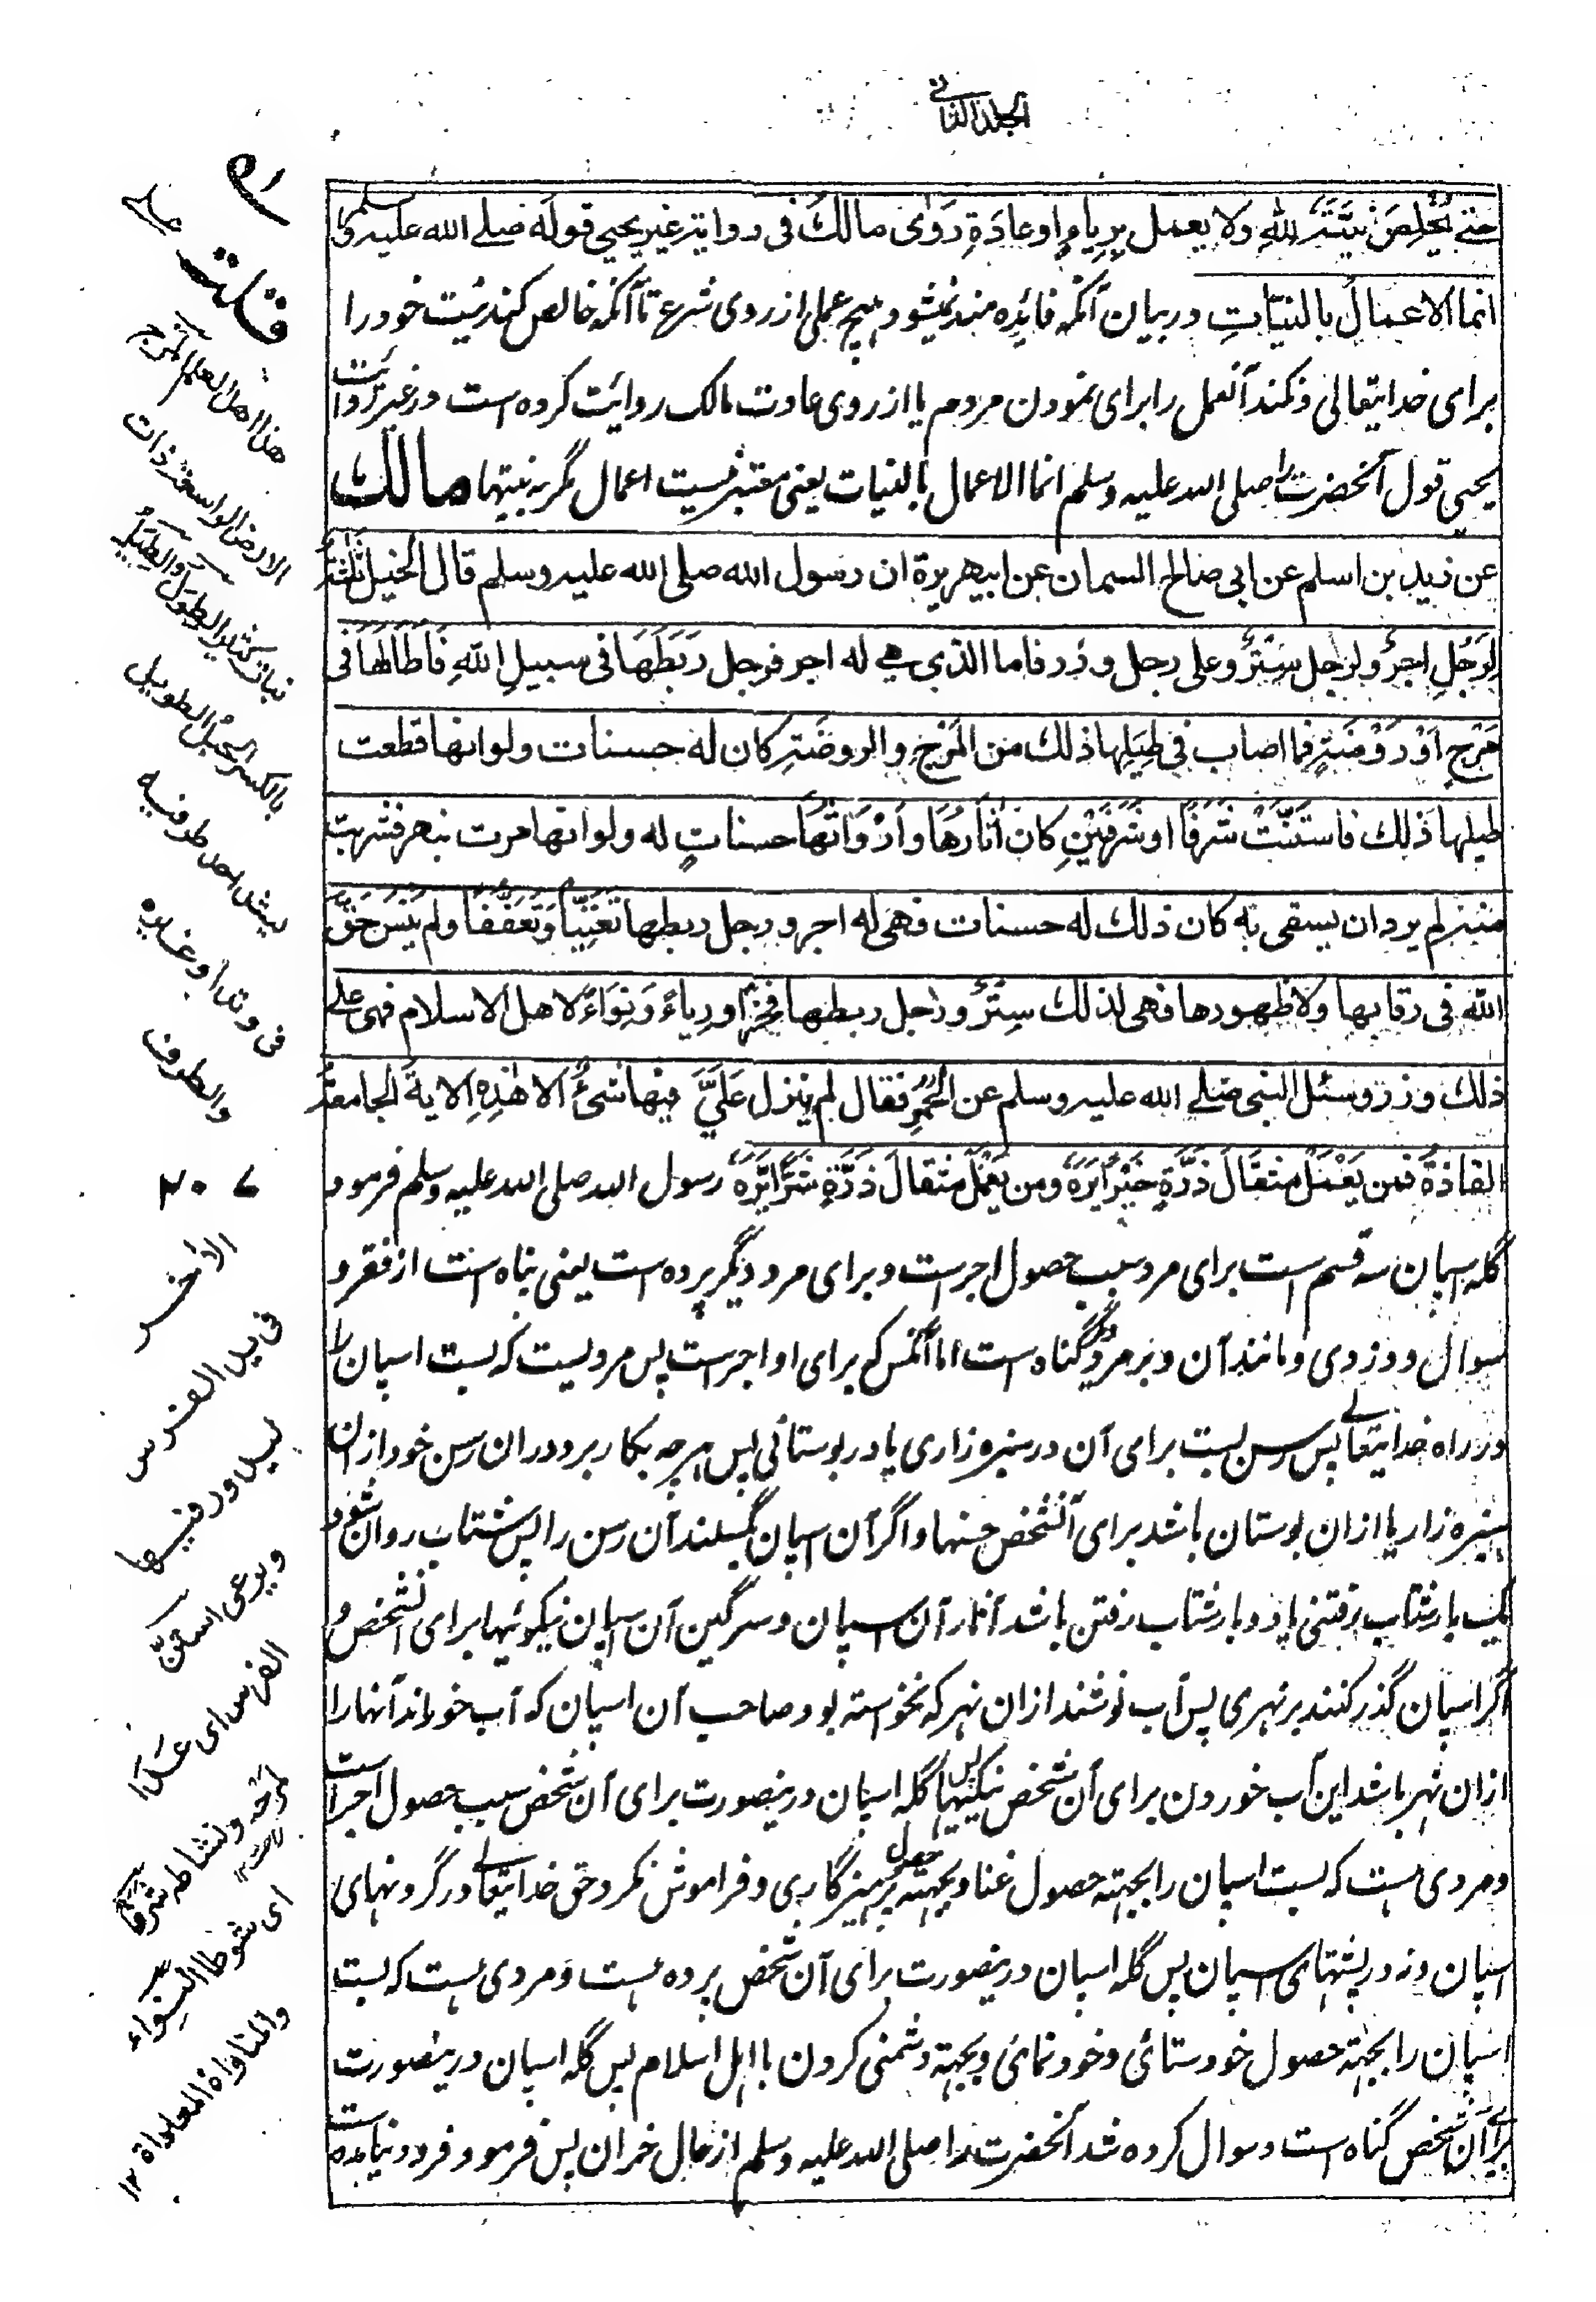 الجلد الثانی
۵۱
حتے یُخْلِصَ نِیَّتَہ لِلّٰہِ ولا یعمل بِرِیاءٍ او عادۃٍ رَوٰی مالکٌ فی روایۃ غیر یحیی قولَہ صلے اللہ علیہ وسلم
انما الاعمالُ بالنیّاتِ در بیان آنکہ فائدہ مند نمیشود ہیچ عملی از روی شرع تا آنکہ خالص کند نیت خود را
برای خدایتعالی و نکند آنعمل را برای نمودن مردم یا از روی عادت مالک روایت کردہ است در غیر روایت
یحیی قول آنحضرت را صلی اللہ علیہ وسلم انما الاعمال بالنیات یعنی معتبر نیست اعمال مگر بہ نیتہا مالک
عن زید بن اسلم عن ابی صالح السمان عن ابیھریرۃ ان رسول اللہ صلی اللہ علیہ وسلم قال الخیل ثلثۃ
لِرَجُلٍ اجرٌ ولرجل سِتْرٌ وعلی رجل وزر فاما الذی ھے لہ اجر فرجل رَبَطَھَا فی سبیلِ اللّٰہِ فَاَطَالَھَا فی
مَرْجٍ اَوْ رَوْضَۃٍ فما اصاب فی طِیَلِھا ذلک من المَرْجِ والروضَۃِ کان لہ حسنات ولو انھا قطعت
طیلھا ذلک فاستَنَّتْ شَرَفًا او شَرَفَیْنِ کان اٰثارُھَا واَرْوَاثُھَا حسناتٍ لہ ولو انھا مرت بنھر فشربت
منہ لم یرد ان یسقی بہ کان ذلک لہ حسنات فھی لہ اجر ورجل ربطھا تَغَنِّیًا وَتَعَفُّفًا ولم یَنْسَ حَقَّ
اللہ فی رقابھا ولا ظھورھا فھی لذلک سِتْرٌ ورجل ربطھا فخرًا ورِیاءً وَنِوَاءً لاھل الاسلام فھی علے
ذلک وزر وسئل النبی صلے اللہ علیہ وسلم عن الحُمُرِ فقال لم ینزل عَلَیَّ فیھا شیءٌ الا ھٰذِہِ الایۃُ الجامعۃُ
الفاذۃُ فمن یَعْمَلْ مثقَالَ ذَرَّۃٍ خَیْرًا یَرَہٗ ومن یَعْمَلْ مثقالَ ذَرَّۃٍ شَرًّا یَّرَہٗ رسول اللہ صلی اللہ علیہ وسلم فرمود
گلہ اسپان سہ قسم است برای مرد سبب حصول اجر است و برای مرد دیگر پردہ است یعنی پناہ است از فقر و
سوال و دزدی و مانند آن و بر مرد دیگر گناہ است اما آنکس کہ برای او اجر است پس مردیست کہ بست اسپان را
در راہ خدایتعالی پس رسن بست برای آن در سبزہ زاری یا در بوستانی پس ہرچہ بکار برد دران رسن خود ازان
سبزہ زار یا ازان بوستان باشد برای آنشخص حسنہا و اگر آن اسپان بگسلند آن رسن را پس بشتاب روان شوند
یک بار شتاب رفتنی یا دو بار شتاب رفتن باشد آثار آن اسپان و سرگین آن اسپان نیکوئیہا برای آنشخص و
اگر اسپان گذر کنند بر نہری پس آب نوشند ازان نہر کہ نخواستہ بود صاحب آن اسپان کہ آب خوراند آنہا را
ازان نہر باشد این آب خوردن برای آن شخص نیکیہا پس گلہ اسپان درینصورت برای آن شخص سبب حصول اجر است
و مردی ہست کہ بست اسپان را بجہتہ حصول غنا و بجہتہ حصول پرہیزگاری و فراموش نکرد حق خدایتعالی در گردنہای
اسپان و نہ در پشتہای اسپان پس گلہ اسپان درینصورت برای آن شخص پردہ ہست و مردی ہست کہ بست
اسپان را بجہتہ حصول خودستائی و خودنمائی و بجہتہ دشمنی کردن با اہل اسلام پس گلہ اسپان درینصورت
برای آن شخص گناہ است و سوال کردہ شد آنحضرت را صلی اللہ علیہ وسلم از حال خران پس فرمود فرود نیامدہ است
قلت
علیہ
ھذا اھل العلم المرج
الارض الواسعۃ ذات
نبات کثیر الطِوَل والطِیَل
بالکسر الحبل الطویل
یشد احد طرفیہ
فی وتد او غیرہ
والطرف
الاٰخر
فی ید الفرس
لیدور فیھا
ویرعی استنّ
الفرس ای عدا
لمرحہ ونشاطہ شرفًا
ای شوطا النِواء
والمناواۃ المعاداۃ ۱۲